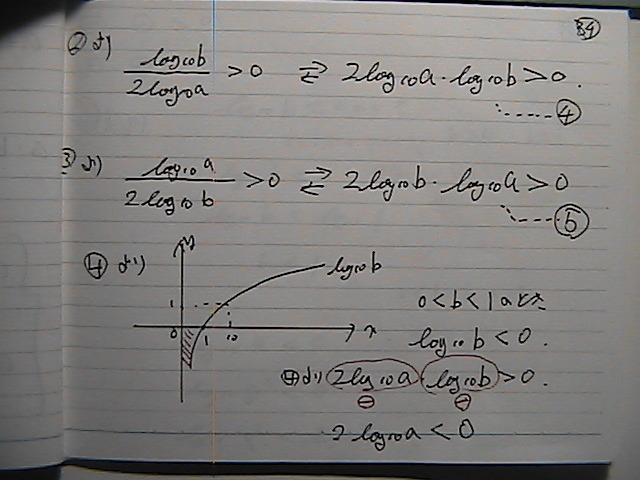 34
②より log₁₀b / 2log₁₀a > 0 ⇄ 2log₁₀a・log₁₀b > 0.
------④
③より log₁₀a / 2log₁₀b > 0 ⇄ 2log₁₀b・log₁₀a > 0
------⑤
④より y log₁₀b
1
0 1 10 x
0<b<1のとき
log₁₀b < 0.
④より 2log₁₀a log₁₀b > 0.
⊖ ⊖
2log₁₀a < 0